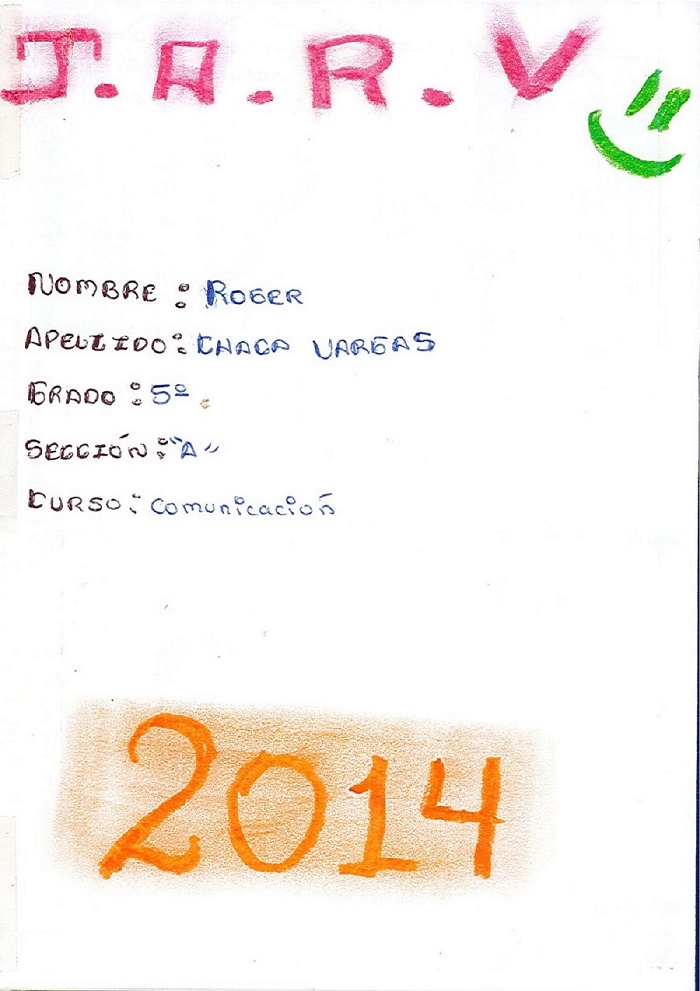 J.A.R.V
NOMBRE : ROGER
APELLIDO: CHACA VARGAS
GRADO : 5º.
SECCIÓN: "A"
CURSO: comunicación
2014